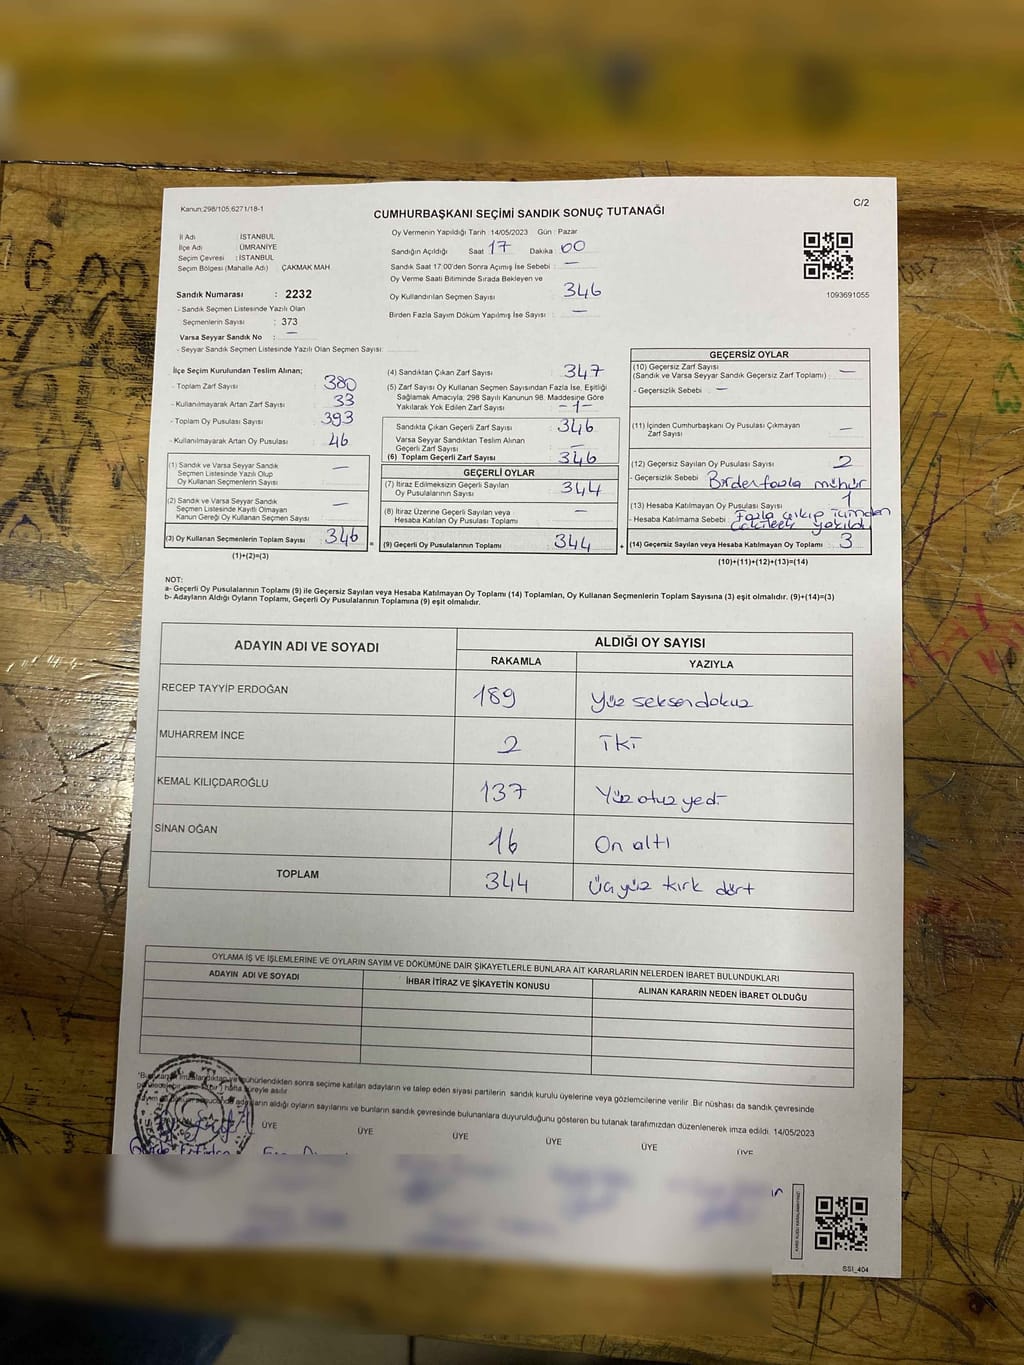 Kanun:298/105,6271/18-1
CUMHURBAŞKANI SEÇİMİ SANDIK SONUÇ TUTANAĞI
C/2
İl Adı : İSTANBUL
İlçe Adı : ÜMRANİYE
Seçim Çevresi : İSTANBUL
Seçim Bölgesi (Mahalle Adı) ÇAKMAK MAH
Sandık Numarası : 2232
- Sandık Seçmen Listesinde Yazılı Olan
Seçmenlerin Sayısı : 373
Varsa Seyyar Sandık No : —
- Seyyar Sandık Seçmen Listesinde Yazılı Olan Seçmen Sayısı:
Oy Vermenin Yapıldığı Tarih : 14/05/2023 Gün : Pazar
Sandığın Açıldığı Saat 17 Dakika 00
Sandık Saat 17:00'den Sonra Açımış İse Sebebi : —
Oy Verme Saati Bitiminde Sırada Bekleyen ve
Oy Kullandırılan Seçmen Sayısı 346
Birden Fazla Sayım Döküm Yapılmış İse Sayısı : —
1093691055
İlçe Seçim Kurulundan Teslim Alınan;
- Toplam Zarf Sayısı : 380
- Kullanılmayarak Artan Zarf Sayısı : 33
- Toplam Oy Pusulası Sayısı : 393
- Kullanılmayarak Artan Oy Pusulası : 46
(1) Sandık ve Varsa Seyyar Sandık
Seçmen Listesinde Yazılı Olup
Oy Kullanan Seçmenlerin Sayısı —
(2) Sandık ve Varsa Seyyar Sandık
Seçmen Listesinde Kayıtlı Olmayan
Kanun Gereği Oy Kullanan Seçmen Sayısı —
(3) Oy Kullanan Seçmenlerin Toplam Sayısı 346
(1)+(2)=(3)
=
(4) Sandıktan Çıkan Zarf Sayısı : 347
(5) Zarf Sayısı Oy Kullanan Seçmen Sayısından Fazla İse, Eşitliği
Sağlamak Amacıyla; 298 Sayılı Kanunun 98. Maddesine Göre
Yakılarak Yok Edilen Zarf Sayısı : -1-
Sandıkta Çıkan Geçerli Zarf Sayısı : 346
Varsa Seyyar Sandıktan Teslim Alınan
Geçerli Zarf Sayısı : —
(6) Toplam Geçerli Zarf Sayısı : 346
GEÇERLİ OYLAR
(7) İtiraz Edilmeksizin Geçerli Sayılan
Oy Pusulalarının Sayısı : 344
(8) İtiraz Üzerine Geçerli Sayılan veya
Hesaba Katılan Oy Pusulası Toplamı : —
(9) Geçerli Oy Pusulalarının Toplamı : 344
+
GEÇERSİZ OYLAR
(10) Geçersiz Zarf Sayısı
(Sandık ve Varsa Seyyar Sandık Geçersiz Zarf Toplamı) : —
- Geçersizlik Sebebi : —
(11) İçinden Cumhurbaşkanı Oy Pusulası Çıkmayan
Zarf Sayısı : —
(12) Geçersiz Sayılan Oy Pusulası Sayısı : 2
- Geçersizlik Sebebi : Birden fazla mühür
(13) Hesaba Katılmayan Oy Pusulası Sayısı : 1
- Hesaba Katılmama Sebebi : Fazla çıkıp içinden
çekilerek yakıldı
(14) Geçersiz Sayılan veya Hesaba Katılmayan Oy Toplamı : 3
(10)+(11)+(12)+(13)=(14)
NOT:
a- Geçerli Oy Pusulalarının Toplamı (9) ile Geçersiz Sayılan veya Hesaba Katılmayan Oy Toplamı (14) Toplamları, Oy Kullanan Seçmenlerin Toplam Sayısına (3) eşit olmalıdır. (9)+(14)=(3)
b- Adayların Aldığı Oyların Toplamı, Geçerli Oy Pusulalarının Toplamına (9) eşit olmalıdır.
ADAYIN ADI VE SOYADI
ALDIĞI OY SAYISI
RAKAMLA YAZIYLA
RECEP TAYYİP ERDOĞAN 189 Yüz seksen dokuz
MUHARREM İNCE 2 İki
KEMAL KILIÇDAROĞLU 137 Yüz otuz yedi
SİNAN OĞAN 16 On altı
TOPLAM 344 Üç yüz kırk dört
OYLAMA İŞ VE İŞLEMLERİNE VE OYLARIN SAYIM VE DÖKÜMÜNE DAİR ŞİKAYETLERLE BUNLARA AİT KARARLARIN NELERDEN İBARET BULUNDUKLARI
ADAYIN ADI VE SOYADI İHBAR İTİRAZ VE ŞİKAYETİN KONUSU ALINAN KARARIN NEDEN İBARET OLDUĞU
mühürlendikten sonra seçime katılan adayların ve talep eden siyasi partilerin sandık kurulu üyelerine veya gözlemcilerine verilir. Bir nüshası da sandık çevresinde
hafta süreyle asılır
adayların aldığı oyların sayılarını ve bunların sandık çevresinde bulunanlara duyurulduğunu gösteren bu tutanak tarafımızdan düzenlenerek imza edildi. 14/05/2023
ÜYE ÜYE ÜYE ÜYE ÜYE ÜYE
SSI_404